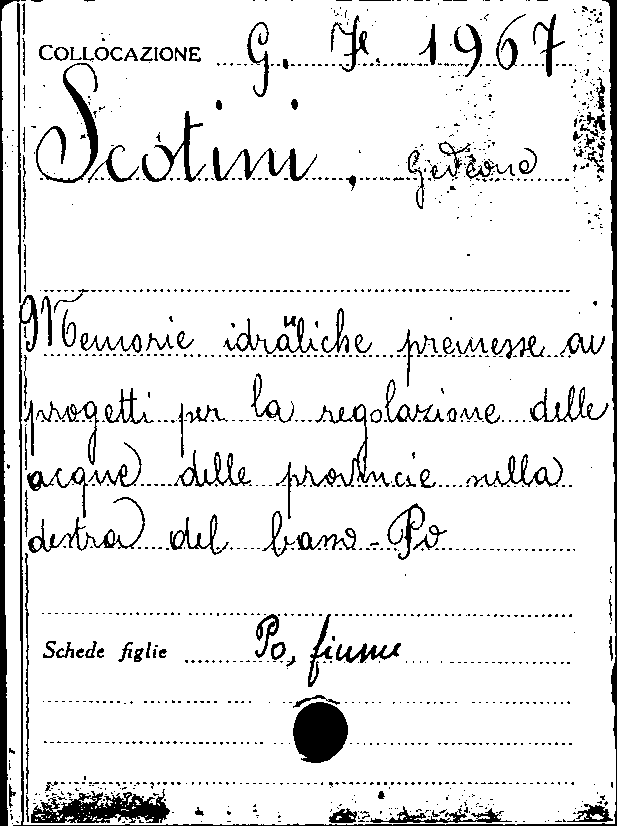 COLLOCAZIONE G. F. 1967
Scotini, Gedeone
Memorie idrauliche premesse ai
progetti per la regolazione delle
acque delle provincie nella
destra del basso-Po
Schede figlie Po, fiume